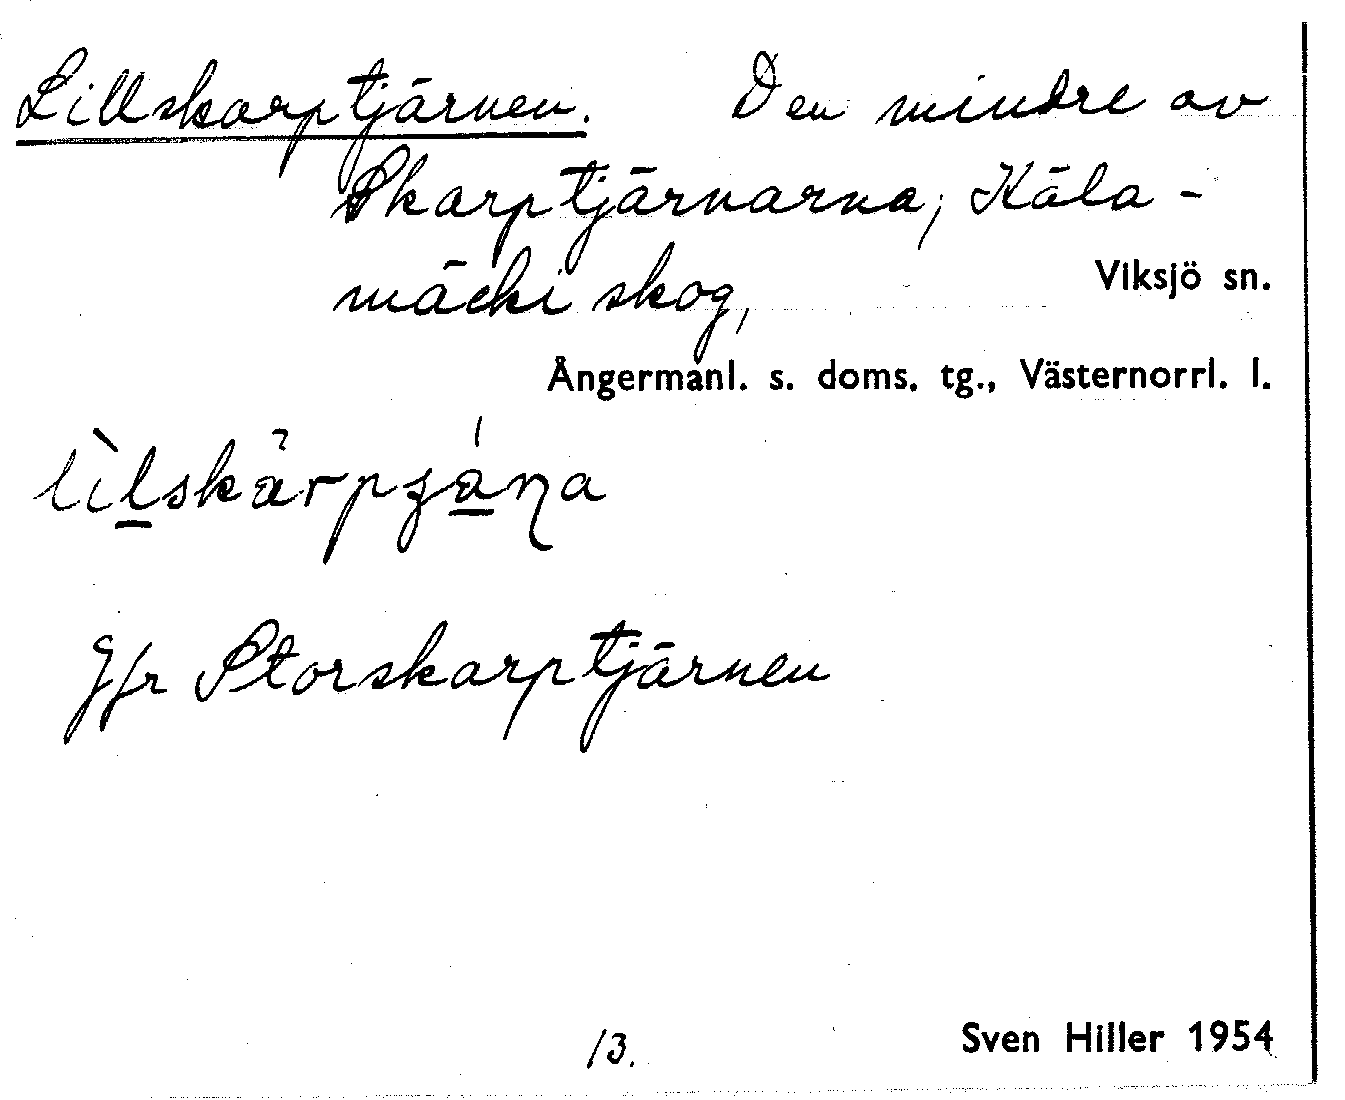 Lillskarptjärnen. Den mindre av
Skarptjärnarna, Käla-
mäcki skog,
Viksjö sn.
Ångermanl. s. doms. tg., Västernorrl. l.
Jfr Storskarptjärnen
13.
Sven Hiller 1954